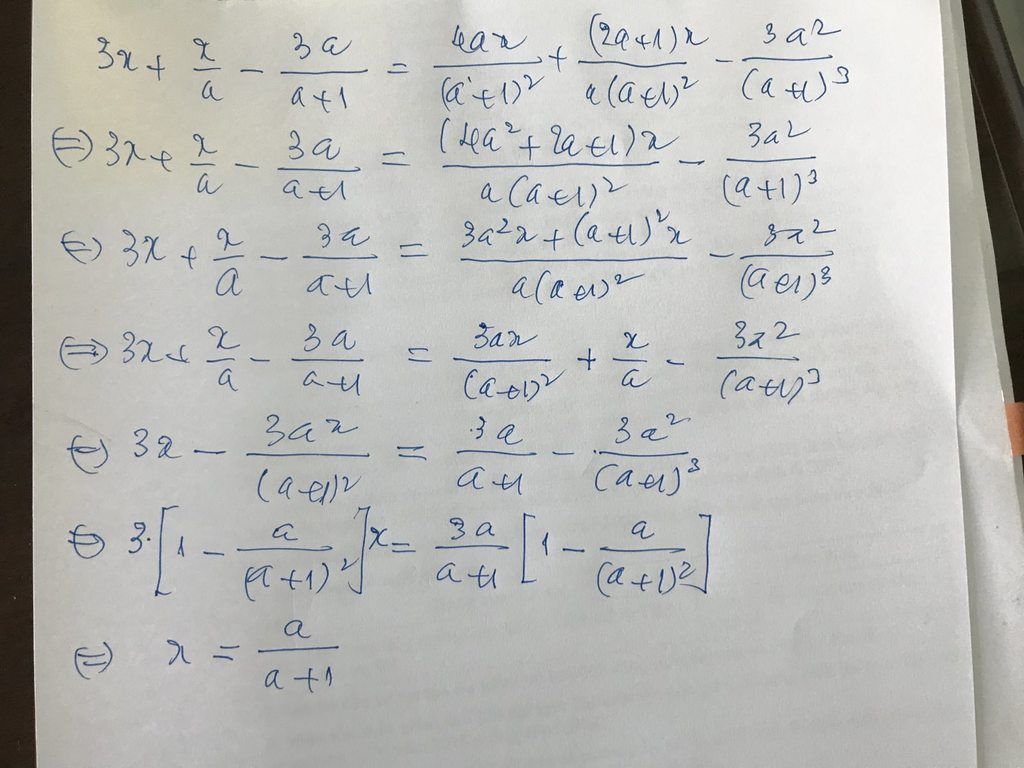 3x + x/a - 3a/(a+1) = 4ax/(a+1)² + (2a+1)x/(a(a+1)²) - 3a²/(a+1)³
⇔ 3x + x/a - 3a/(a+1) = (4a² + 2a+1)x/(a(a+1)²) - 3a²/(a+1)³
⇔ 3x + x/a - 3a/(a+1) = (3a²x + (a+1)²x)/(a(a+1)²) - 3a²/(a+1)³
⇔ 3x + x/a - 3a/(a+1) = 3ax/(a+1)² + x/a - 3a²/(a+1)³
⇔ 3x - 3ax/(a+1)² = 3a/(a+1) - 3a²/(a+1)³
⇔ 3.[1 - a/(a+1)²]x = 3a/(a+1) [1 - a/(a+1)²]
⇔ x = a/(a+1)